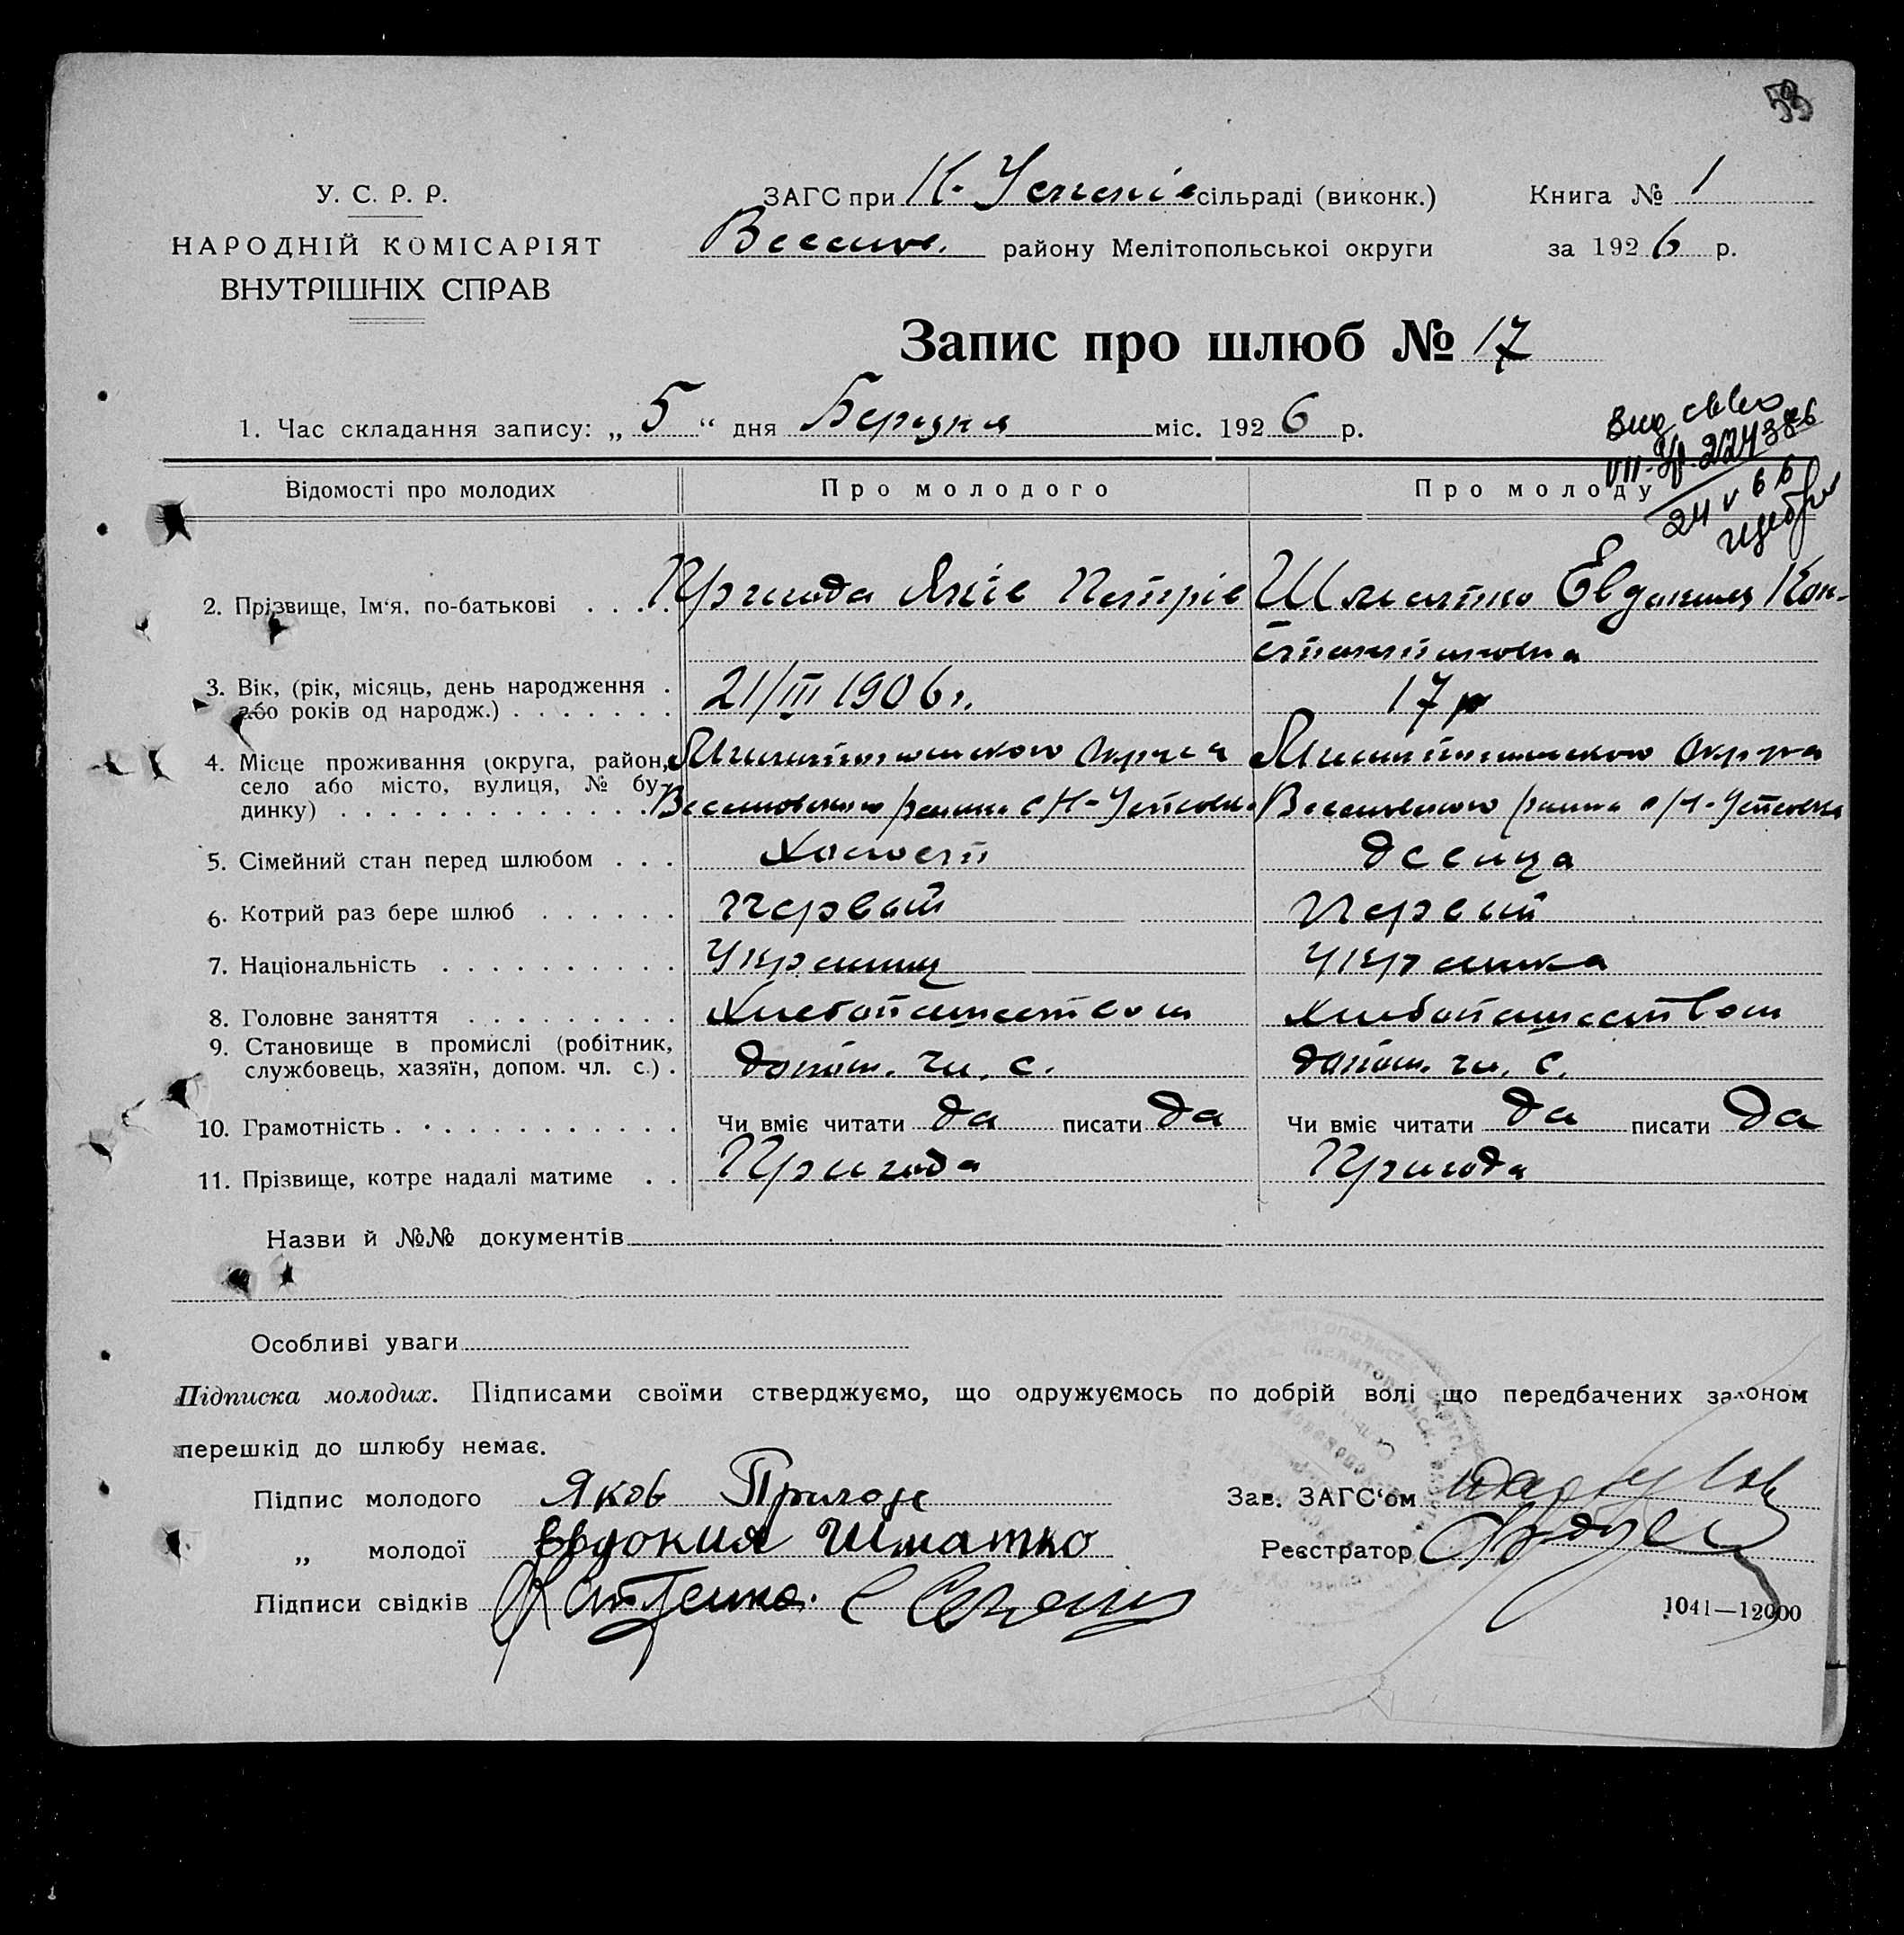 У. С. Р. Р.
НАРОДНІЙ КОМІСАРІЯТ
ВНУТРІШНІХ СПРАВ
ЗАГС при сільраді (виконк.) Книга № 1
Веселов. району Мелітопольської округи за 1926 р.
Запис про шлюб № 17
1. Час складання запису: „5“ дня Березня міс. 1926 р.
24 V 66
Відомості про молодих Про молодого Про молоду
2. Прізвище, Ім‘я, по-батькові . . . . Пригода Яків Петрів Шматко Евдокия Кон-
стантиновна
3. Вік, (рік, місяць, день народження . 21/III 1906 г. 17 р
або років од народж.) . . . . . . .
4. Місце проживання (округа, район, Мелитопольского Округа Мелитопольского Округа
село або місто, вулиця, № бу-
динку) . . . . . . . . . . . . . Веселовского района с Н-Успеновка Веселовского района с Н-Успеновка
5. Сімейний стан перед шлюбом . . . Холост девица
6. Котрий раз бере шлюб . . . . . . Первый Первый
7. Національність . . . . . . . . . . Украинец Украинка
8. Головне заняття . . . . . . . . . Хлебопашеством Хлебопашеством
9. Становище в промислі (робітник,
службовець, хазяїн, допом. чл. с.) . допом. чл. с. допом. чл. с.
10. Грамотність . . . . . . . . . . . . Чи вміє читати да писати да Чи вміє читати да писати да
11. Прізвище, котре надалі матиме . . Пригода Пригода
Назви й №№ документів
Особливі уваги
Підписка молодих. Підписами своїми стверджуємо, що одружуємось по добрій волі що передбачених законом
перешкід до шлюбу немає.
Підпис молодого Яков Пригода Зав. ЗАГС‘ом
„ молодої Евдокия Шматко Реєстратор
Підписи свідків
1041—12000